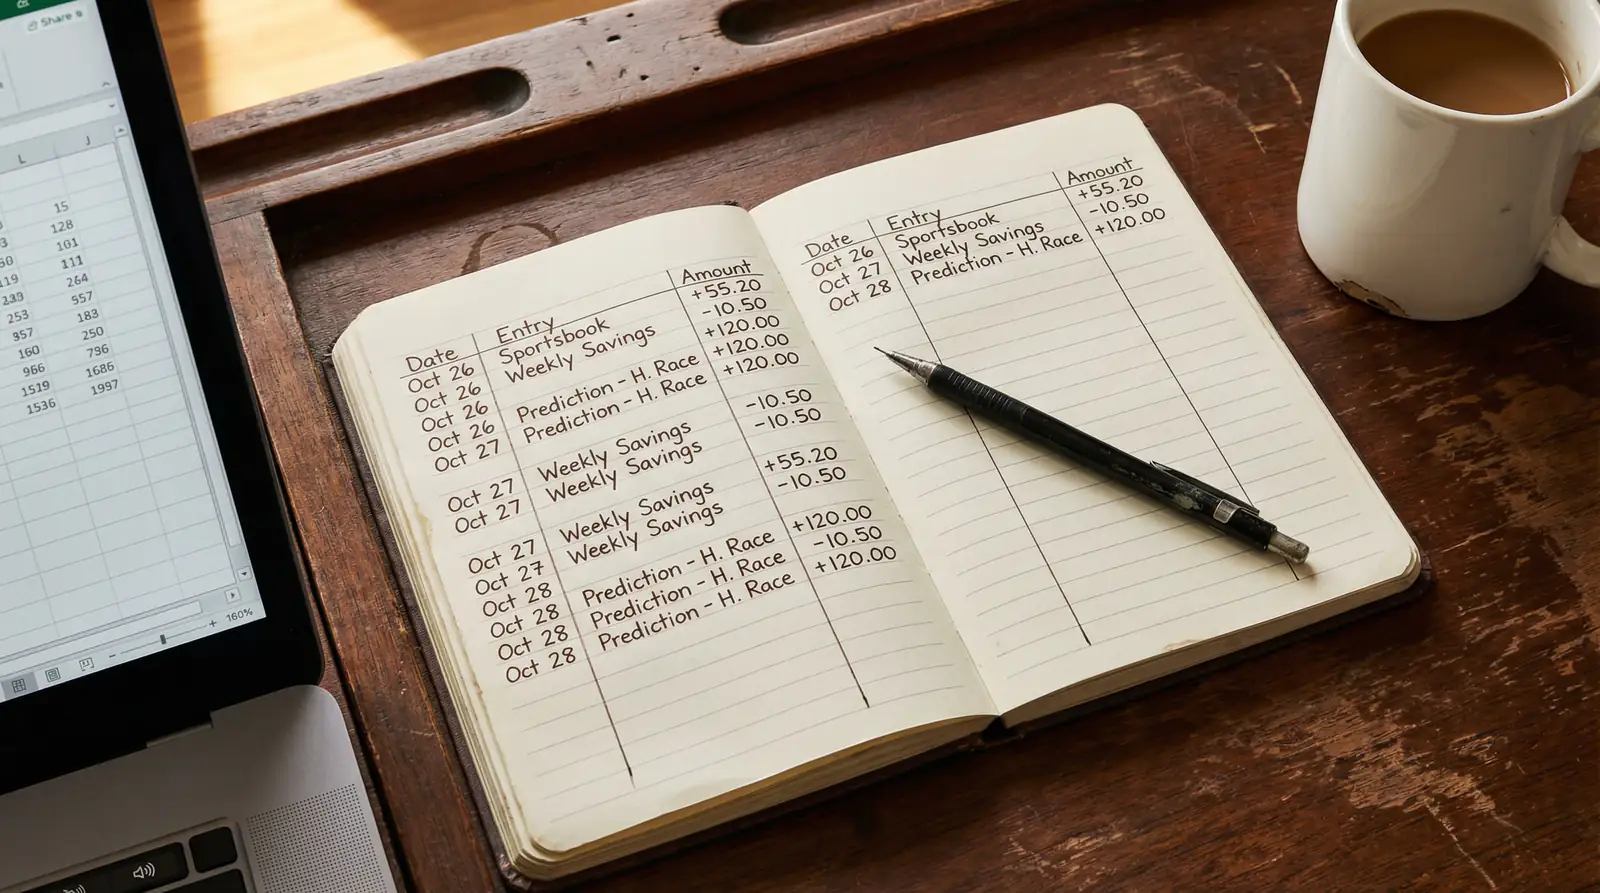 Share
L J
15
128
101
111
264
253 557
357 183
160 250
966 796
1519 1686
1536 1997
160%
Date Entry Amount
Oct 26 Sportsbook +55.20
Oct 26 Weekly Savings -10.50
Oct 26 +120.00
Oct 26 Prediction - H. Race +120.00
Oct 27 Prediction - H. Race +120.00
Oct 27 Weekly Savings -10.50
Oct 27 Weekly Savings -10.50
Oct 27 Weekly Savings +55.20
Oct 27 Weekly Savings -10.50
Oct 28
Oct 28 Prediction - H. Race +120.00
Oct 28 Prediction - H. Race -10.50
Oct 28 Prediction - H. Race +120.00
Date Entry Amount
Oct 26 Sportsbook +55.20
Oct 27 Weekly Savings -10.50
Oct 28 Prediction - H. Race +120.00